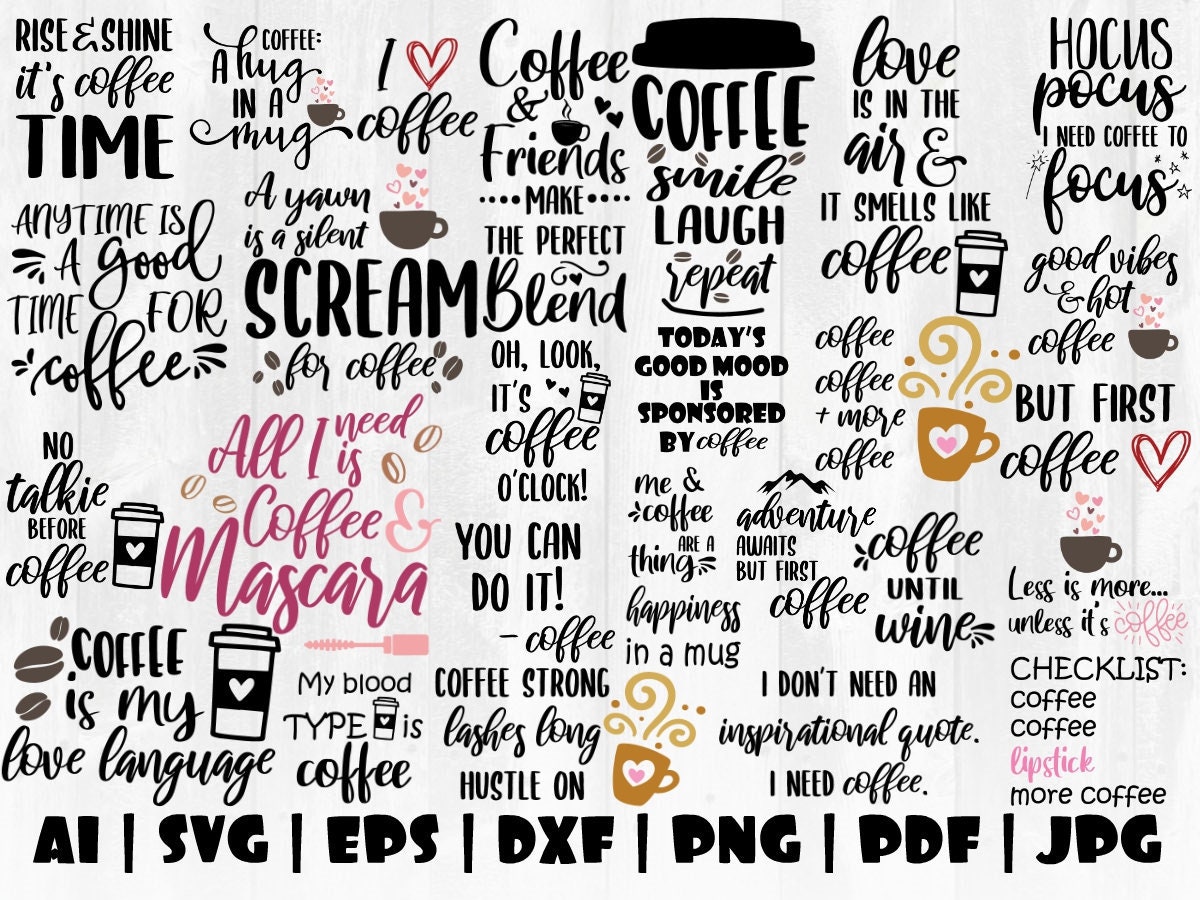 RISE & SHINE
it's coffee
TIME
COFFEE:
A hug
IN A
mug
I
coffee
Coffee
&
Friends
MAKE
THE PERFECT
Blend
COFFEE
smile
LAUGH
repeat
love
IS IN THE
air &
IT SMELLS LIKE
coffee
HOCUS
pocus
I NEED COFFEE TO
focus
ANYTIME IS
A good
TIME FOR
coffee
A yawn
is a silent
SCREAM
for coffee
good vibes
& hot
coffee
OH, LOOK,
IT'S
coffee
O'CLOCK!
TODAY'S
GOOD MOOD
IS
SPONSORED
BY coffee
coffee
coffee
+ more
coffee
BUT FIRST
coffee
NO
talkie
BEFORE
coffee
All I need
is
Coffee &
Mascara
YOU CAN
DO IT!
- coffee
me &
coffee
ARE A
thing
adventure
AWAITS
BUT FIRST
coffee
coffee
UNTIL
wine
Less is more...
unless it's coffee
COFFEE
is my
love language
My blood
TYPE is
coffee
COFFEE STRONG
lashes long
HUSTLE ON
happiness
in a mug
I DON'T NEED AN
inspirational quote.
I NEED coffee.
CHECKLIST:
coffee
coffee
lipstick
more coffee
AI | SVG | EPS | DXF | PNG | PDF | JPG